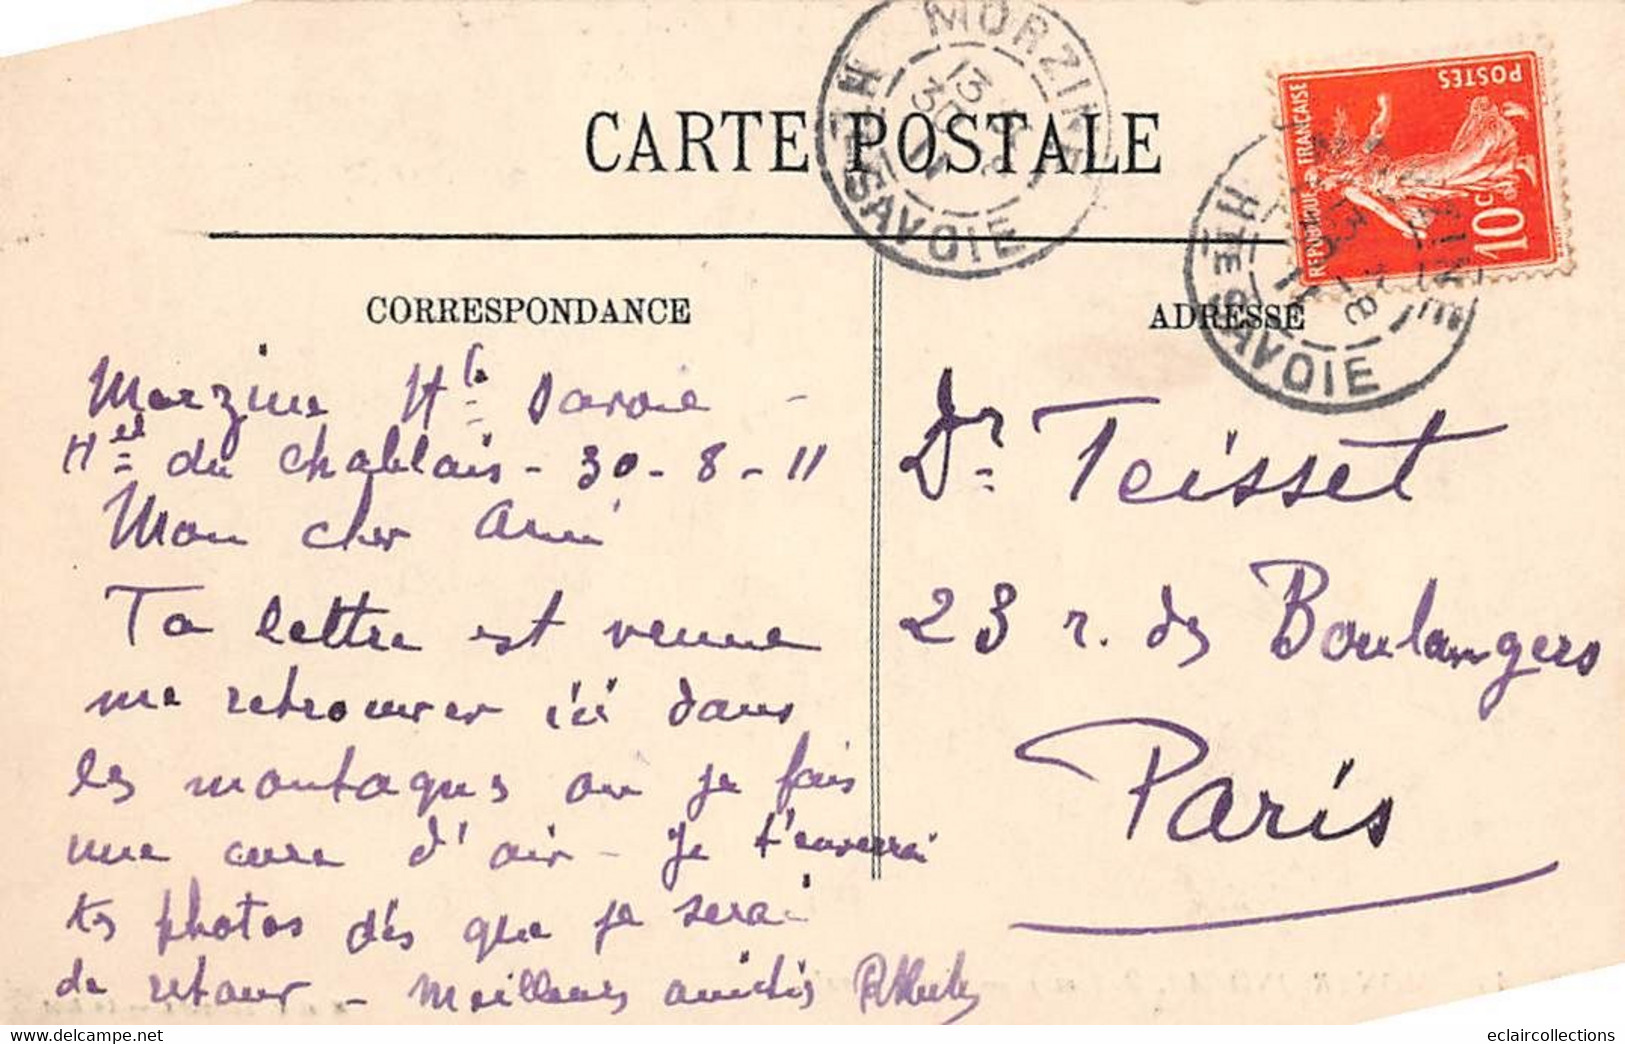 CARTE POSTALE
MORZINE
13
30
11
HTE-SAVOIE
POSTES
REPUBLIQUE FRANCAISE
10c
HTE SAVOIE
CORRESPONDANCE
Morzine Hte Savoie -
Hel du Chablais - 30 - 8 - 11
Mon cher Ami
Ta lettre est venue
me retrouver ici dans
les montagnes ou je fais
une cure d'air - Je t'enverrai
tes photos dès que je serai
de retour - Meilleures amitiés
ADRESSE
Dr. Teisset
23 r. des Boulangers
Paris
eclaircollections